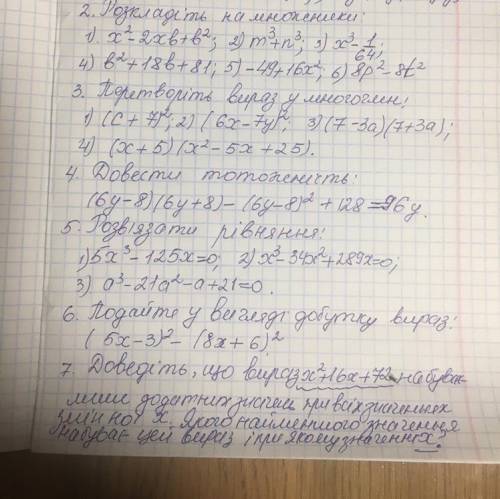 2. Розкладіть на множники:
1). x²-2xb+b²; 2) m³+n³; 3) x³-1/64;
4) b²+18b+81; 5) -49+16x²; 6) 8p²-8t²
3. Перетворіть вираз у многочлен;
1) (c+7)²; 2) (6x-7y)²; 3) (7-3a)(7+3a);
4) (x+5)(x²-5x+25).
4. Довести тотожність:
(6y-8)(6y+8)-(6y-8)²+128=96y.
5. Розв'язати рівняння:
1) 5x³-125x=0; 2) x³-34x²+289x=0;
3) a³-21a²-a+21=0.
6. Подайте у вигляді добутку вираз:
(5x-3)²-(8x+6)²
7. Доведіть, що вираз x²+16x+72 набуває
лише додатних значень при всіх значеннях
змінної x. Якого найменшого значення
набуває цей вираз і при якому значенні x?